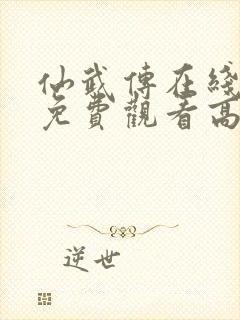 仙武傳在綫
免費觀看高
逆世